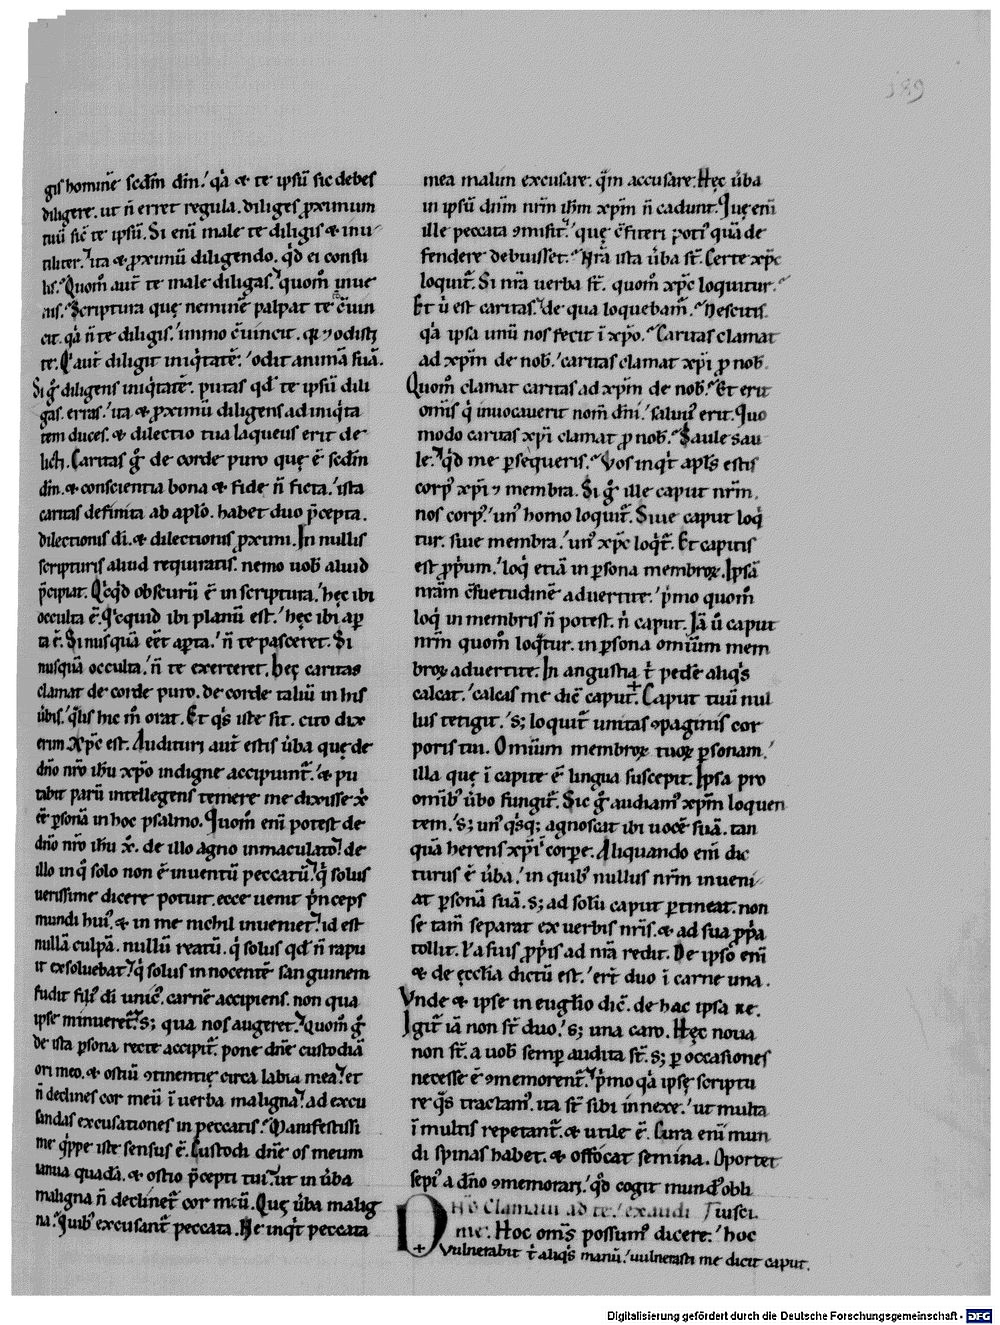 189
gis hominē scdm̄ dm̄.' q̇a & te ipsū sic debes
diligere. ut n̄ erret regula. diliges ꝓximum
tuū sic̄ te ipsū. Si eni male te diligis & inu
tiliter. ita & ꝓximū diligendo. qd̓ ei consu
lis. Quom̄ aut̄ te male diligas. quom̄ inue
nis. Scriptura que neminē palpat te c̄uin
cit. q̇a n̄ te diligis.' immo c̄uincit. q; ⁊ odisti
te. Q aut̄ diligit iniq̇tatē.' odit animā suā.
Si g̊ diligens iniq̇tatē. putas qd̓ te ipsū dili
gas. erras.' ita & ꝓximū diligens ad iniq̇ta
tem duces. & dilectio tua laqueus erit de
licti. Caritas g̊ de corde puro quę ē scdm̄
dm̄. & conscientia bona & fide n̄ ficta.' ista
caritas definita ab aplo. habet duo p̄cepta.
dilectionis di. & dilectionis ꝓximi. In nullis
scripturis aliud requiratis. nemo uob̄ aliud
p̄cipiat. Qcq̇d obscurū ē in scriptura.' hęc ibi
occulta ē. Qcquid ibi planū est.' hęc ibi ap̲
ta ē. Si nusquā eēt ap̲ta.' n̄ te pasceret. Si
nusquā occulta.' n̄ te exerceret. Hęc caritas
clamat de corde puro. de corde taliū in his
ūbis.' q̇lis hic m̄ orat. Et q̇s iste sit. cito dix
erim. Xp̄c est. Audituri aut̄ estis ūba que de
dn̄o nr̄o ihu xp̄o indigne accipiunt̄.' & pu
tabit parū intellegens temere me dixisse x̄
eē p̲sonā in hoc psalmo. Quom̄ eni potest de
dn̄o nr̄o ihu x̄. de illo agno inmaculato. de
illo in q̊ solo non ē inuentū peccatū. q̇ solus
uerissime dicere potuit. ecce uenit p̄nceps
mundi hui᾽. & in me nichil inueniet. id est
nullā culpā. nullū reatū. q̇ solus qd̓ n̄ rapu
it exsoluebat. q̇ solus innocentē sanguinem
fudit fili᾽ di unic᾽. carnē accipiens. non qua
ipse minueret̄. s; qua nos augeret. Quom̄ g̊
de ista p̲sona recte accipit̄. pone dn̄e custodiā
ori meo. & ostiū ꝯtinentię circa labia mea. et
n̄ declines cor meū i uerba maligna. ad excu
sandas excusationes in peccatis. Manifestissi
me q̇ppe iste sensus ē. Custodi dn̄e os meum
ianua quadā. & ostio p̄cepti tui. ut in ūba
maligna n̄ declinet̄ cor meū. Quę ūba malig
na. Quib᾽ excusant̄ peccata. Ne inq̇t peccata
mea malim excusare. q̄m accusare. Hęc ūba
in ipsū dnm̄ nrm̄ ihm̄ xpm̄ n̄ cadunt. Que eni
ille peccata ꝯmisit.' quę c̄fiteri poti᾽ quā de
fendere debuisset. Nr̄a ista ūba st̄. Certe xp̄c
loquit̄. Si nr̄a uerba st̄. quom̄ xp̄c loquitur.
Et ů est caritas. de qua loquebam̄. Nescitis
q̇a ipsa unū nos fecit i xp̄o. Caritas clamat
ad xpm̄ de nob̄.' caritas clamat xpi ꝓ nob̄.
Quom̄ clamat caritas ad xpm̄ de nob̄. Et erit
omīs q̇ inuocauerit nom̄ dn̄i.' salu᾽ erit. Quo
modo caritas xpi clamat ꝓ nob̄. Saule sau
le. qd̓ me p̲sequeris. Vos inq̇t apl̄s estis
corp᾽ xpi ⁊ membra. Si g̊ ille caput nrm̄.
nos corp᾽.' un᾽ homo loquit̄. Siue caput loq̇
tur. siue membra.' un᾽ xp̄c loq̇t̄. Et capitis
est ꝓp̄um.' loq̇ etiā in p̲sona membroꝝ. Ipsā
nr̄am c̄suetudinē aduertite.' p̄mo quom̄
loq̇ in membris n̄ potest. n̊ caput. Iā ů caput
nrm̄ quom̄ loq̇tur. in p̲sona omium mem
broꝝ aduertite. In angustia t̊ pedē aliq̇s
calcat.' calcas me dic̄ caput. Caput tuū nul
lus tetigit.' s; loquit̄ unitas ꝯpaginis cor
poris tui. Omium membroꝝ tuoꝝ p̲sonam.'
illa quę i capite ē lingua suscepit. Ipsa pro
omib᾽ ūbo fungit̄. Sic g̊ audiam᾽ xpm̄ loquen
tem.' s; un᾽q̇sq; agnoscat ibi uocē suā. tan
quā herens xpi corpe. Aliquando eni dic
turus ē ūba.' in quib᾽ nullus nrm̄ inueni
at p̲sonā suā. s; ad solū caput p̲tineat. non
se tam̄ separat ex uerbis nr̄is. & ad sua ꝓpa
tollit. l̓ a suis ꝓp̄is ad nr̄a redit. De ipso eni
& de ęccl̓ia dictū est.' ert̄ duo i carne una.
Vnde & ipse in euglio dic̄. de hac ipsa re.
Igit̄ iā non st̄ duo.' s; una caro. Hęc noua
non st̄. a uob̄ semp̲ audita st̄. s; p̲ occasiones
necesse ē ꝯmemorent̄. p̄mo q̇a ipsę scriptu
re q̇s tractam᾽. ita st̄ sibi innexe.' ut multa
i multis repetant̄. & utile ē. Cura eni mun
di spinas habet. & offocat semina. Oportet
sepi᾽ a dn̄o ꝯmemorari.' qd̓ cogit mund᾽ obli
Dn̄e clamaui ad te.' exaudi Tiusci.
me. Hoc oms̄ possum᾽ dicere.' hoc
Vulnerabit t̊ aliq̇s manū.' uulnerasti me dicit caput.
Digitalisierung gefördert durch die Deutsche Forschungsgemeinschaft - DFG